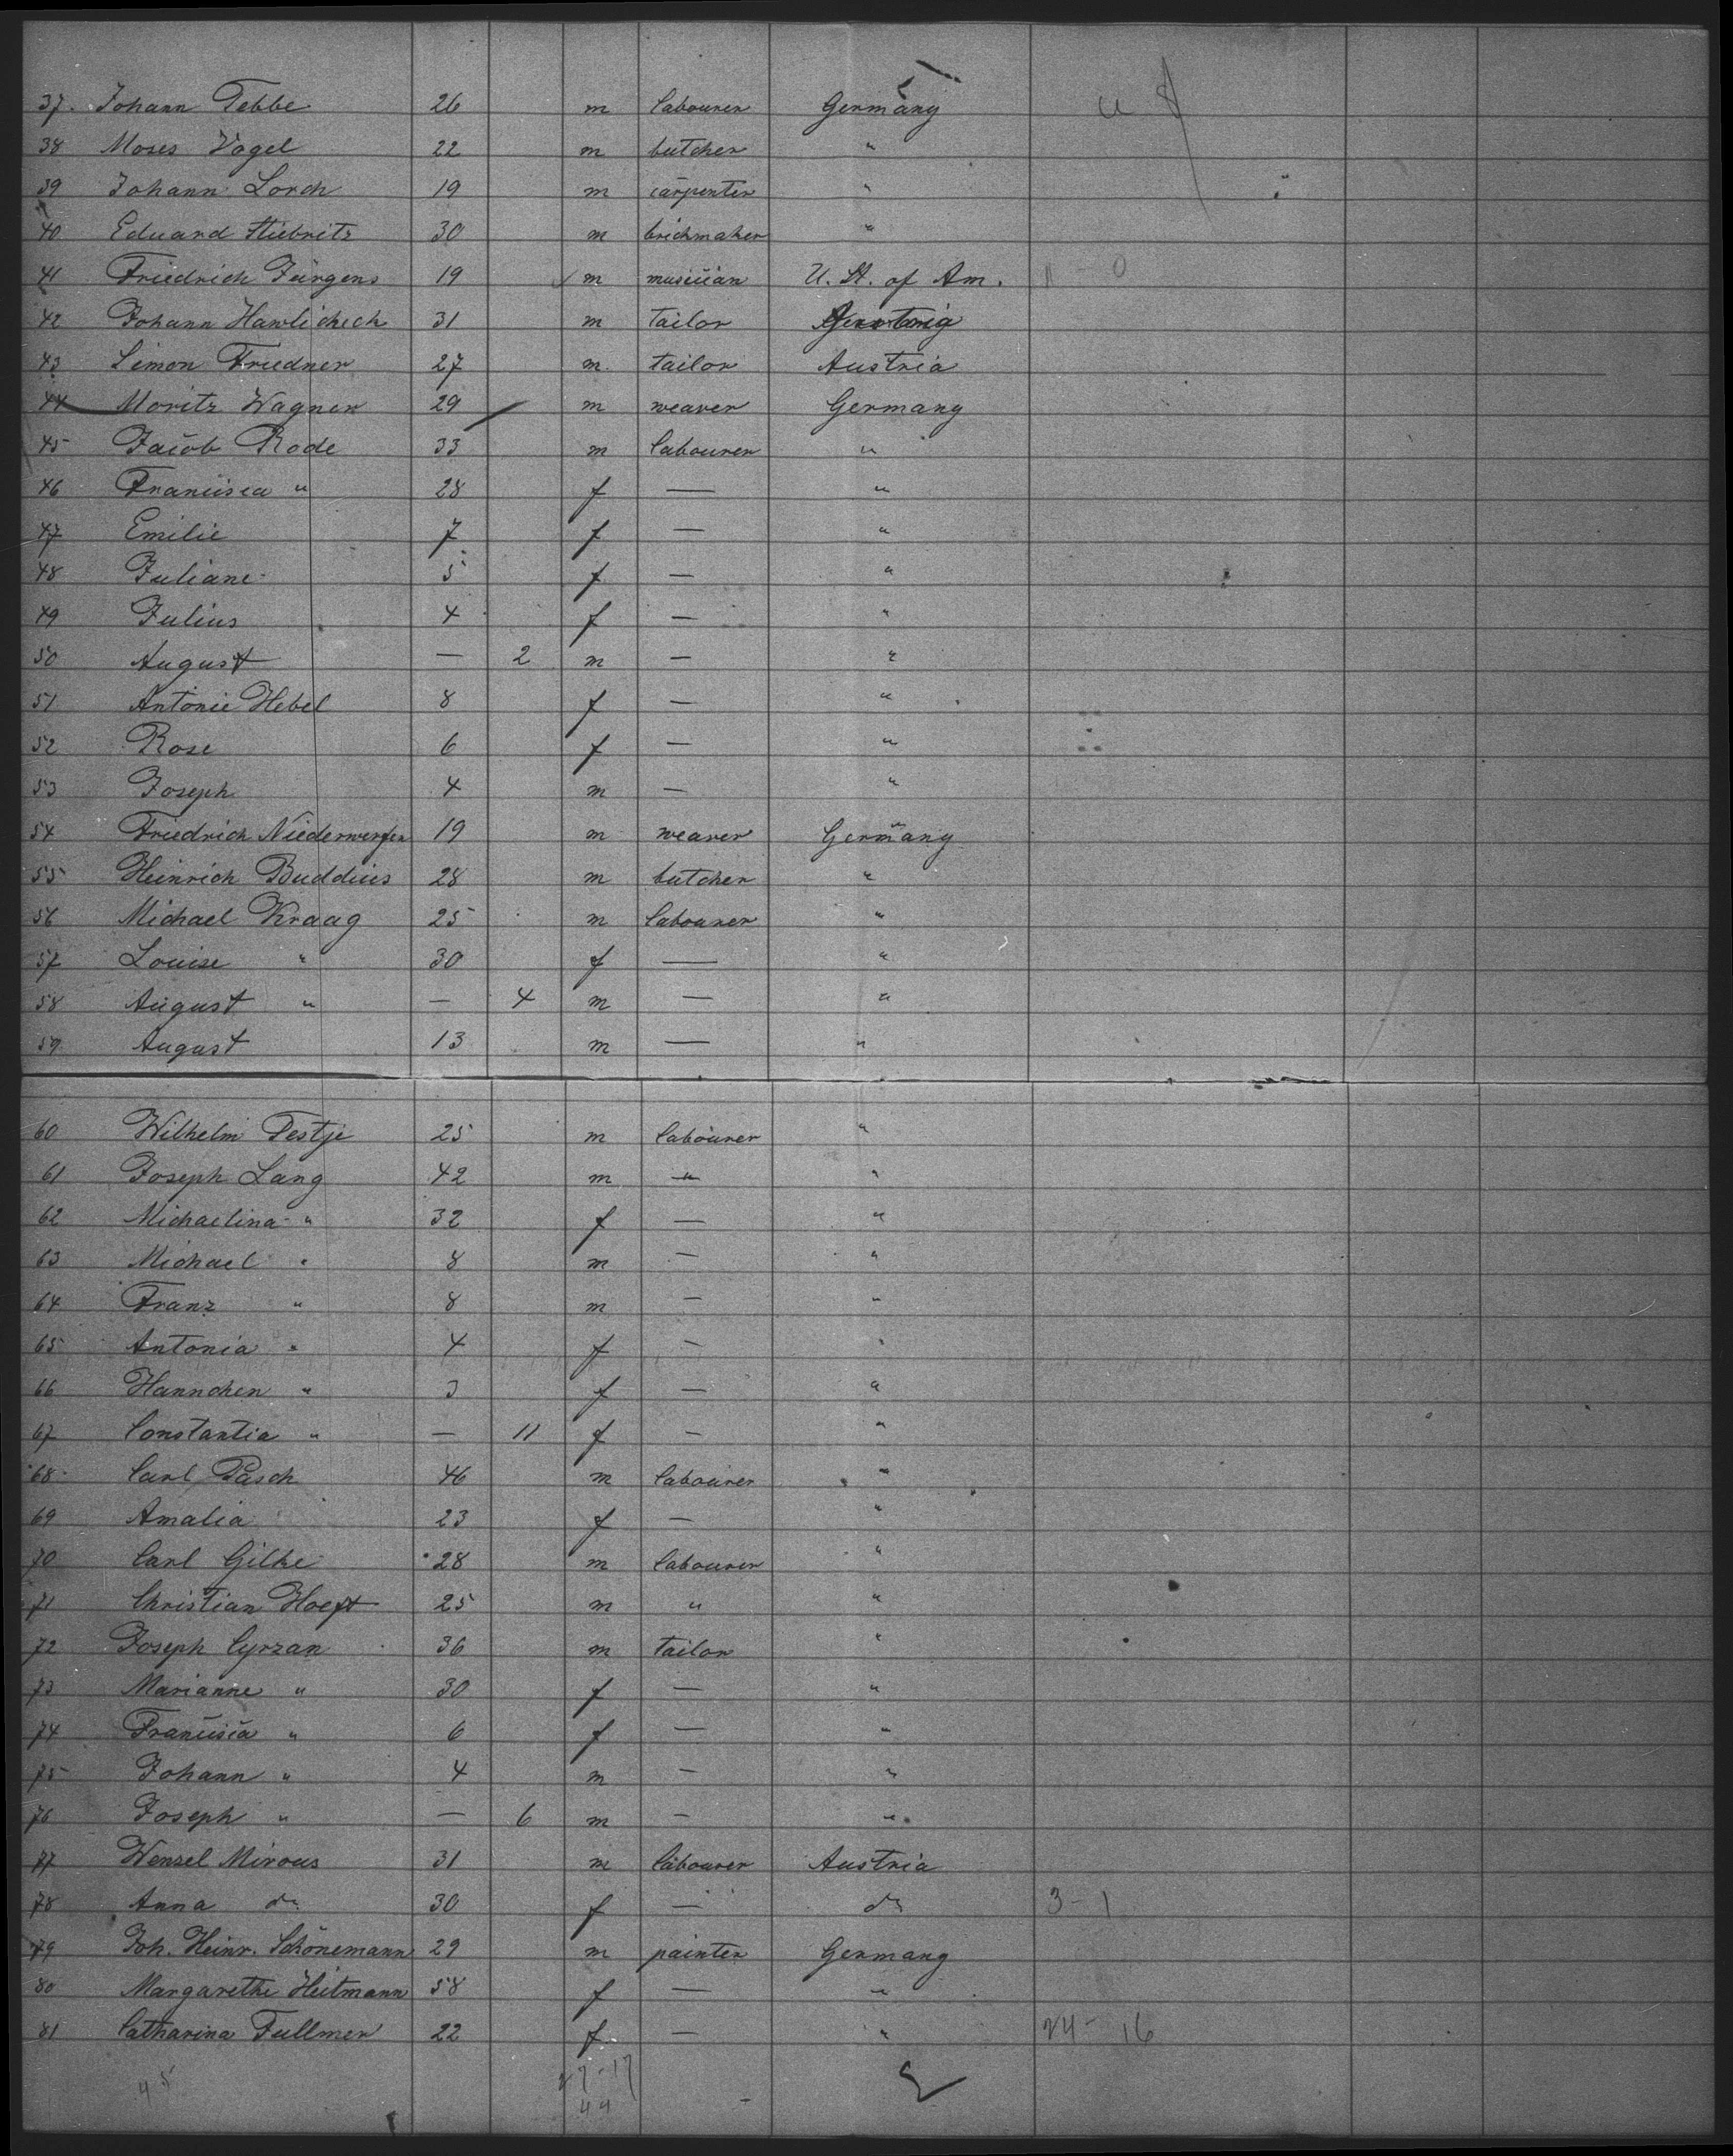 37. Johann Tebbe 26 m labourer Germany
38 Moses Vogel 22 m butcher "
39 Johann Lorch 19 m carpenter "
40 Eduard Stiebritz 30 m brickmaker "
41 Friedrich Jürgens 19 m musician U. St. of Am. 11 0
42 Johann Hawlicheck 31 m tailor
43 Simon Friedner 27 m. tailor Austria
44 Moritz Wagner 29 m weaver Germany
45 Jacob Rode 33 m labourer "
46 Francisca " 28 f — "
47 Emilie 7 f — "
48 Juliane 5 f — "
49 Julius 4 f — "
50 August — 2 m — "
51 Antonie Hebel 8 f — "
52 Rose 6 f — "
53 Joseph 4 m — "
54 Friedrich Niederwerfer 19 m weaver Germany
55 Heinrich Buddius 28 m butcher "
56 Michael Kraag 25 m labourer "
57 Louise " 30 f — "
58 August " — 4 m — "
59. August 13 m — "
60 Wilhelm Testje 25 m labourer "
61 Joseph Lang 42 m " "
62 Michaelina " 32 f — "
63 Michael " 8 m — "
64 Franz " 8 m — "
65 Antonia " 4 f — "
66 Hannchen " 3 f — "
67 Constantia " — 11 f — "
68 Carl Pasch 46 m labourer "
69 Amalia 23 f — "
70 Carl Gilke 28 m labourer "
71 Christian Hoeft 25 m " "
72 Joseph Cyrzan 36 m tailor "
73 Marianne " 30 f — "
74 Francisca " 6 f — "
75 Johann " 4 m — "
76 Joseph " — 6 m — "
77 Wenzel Mirous 31 m labourer Austria
78 Anna do 30 f — do 3 - 1
79 Joh. Heinr. Schönemann 29 m painter Germany
80 Margarethe Heitmann 58 f — "
81 Catharina Fullmer 22 f — " 24 - 16
45 27-17
44